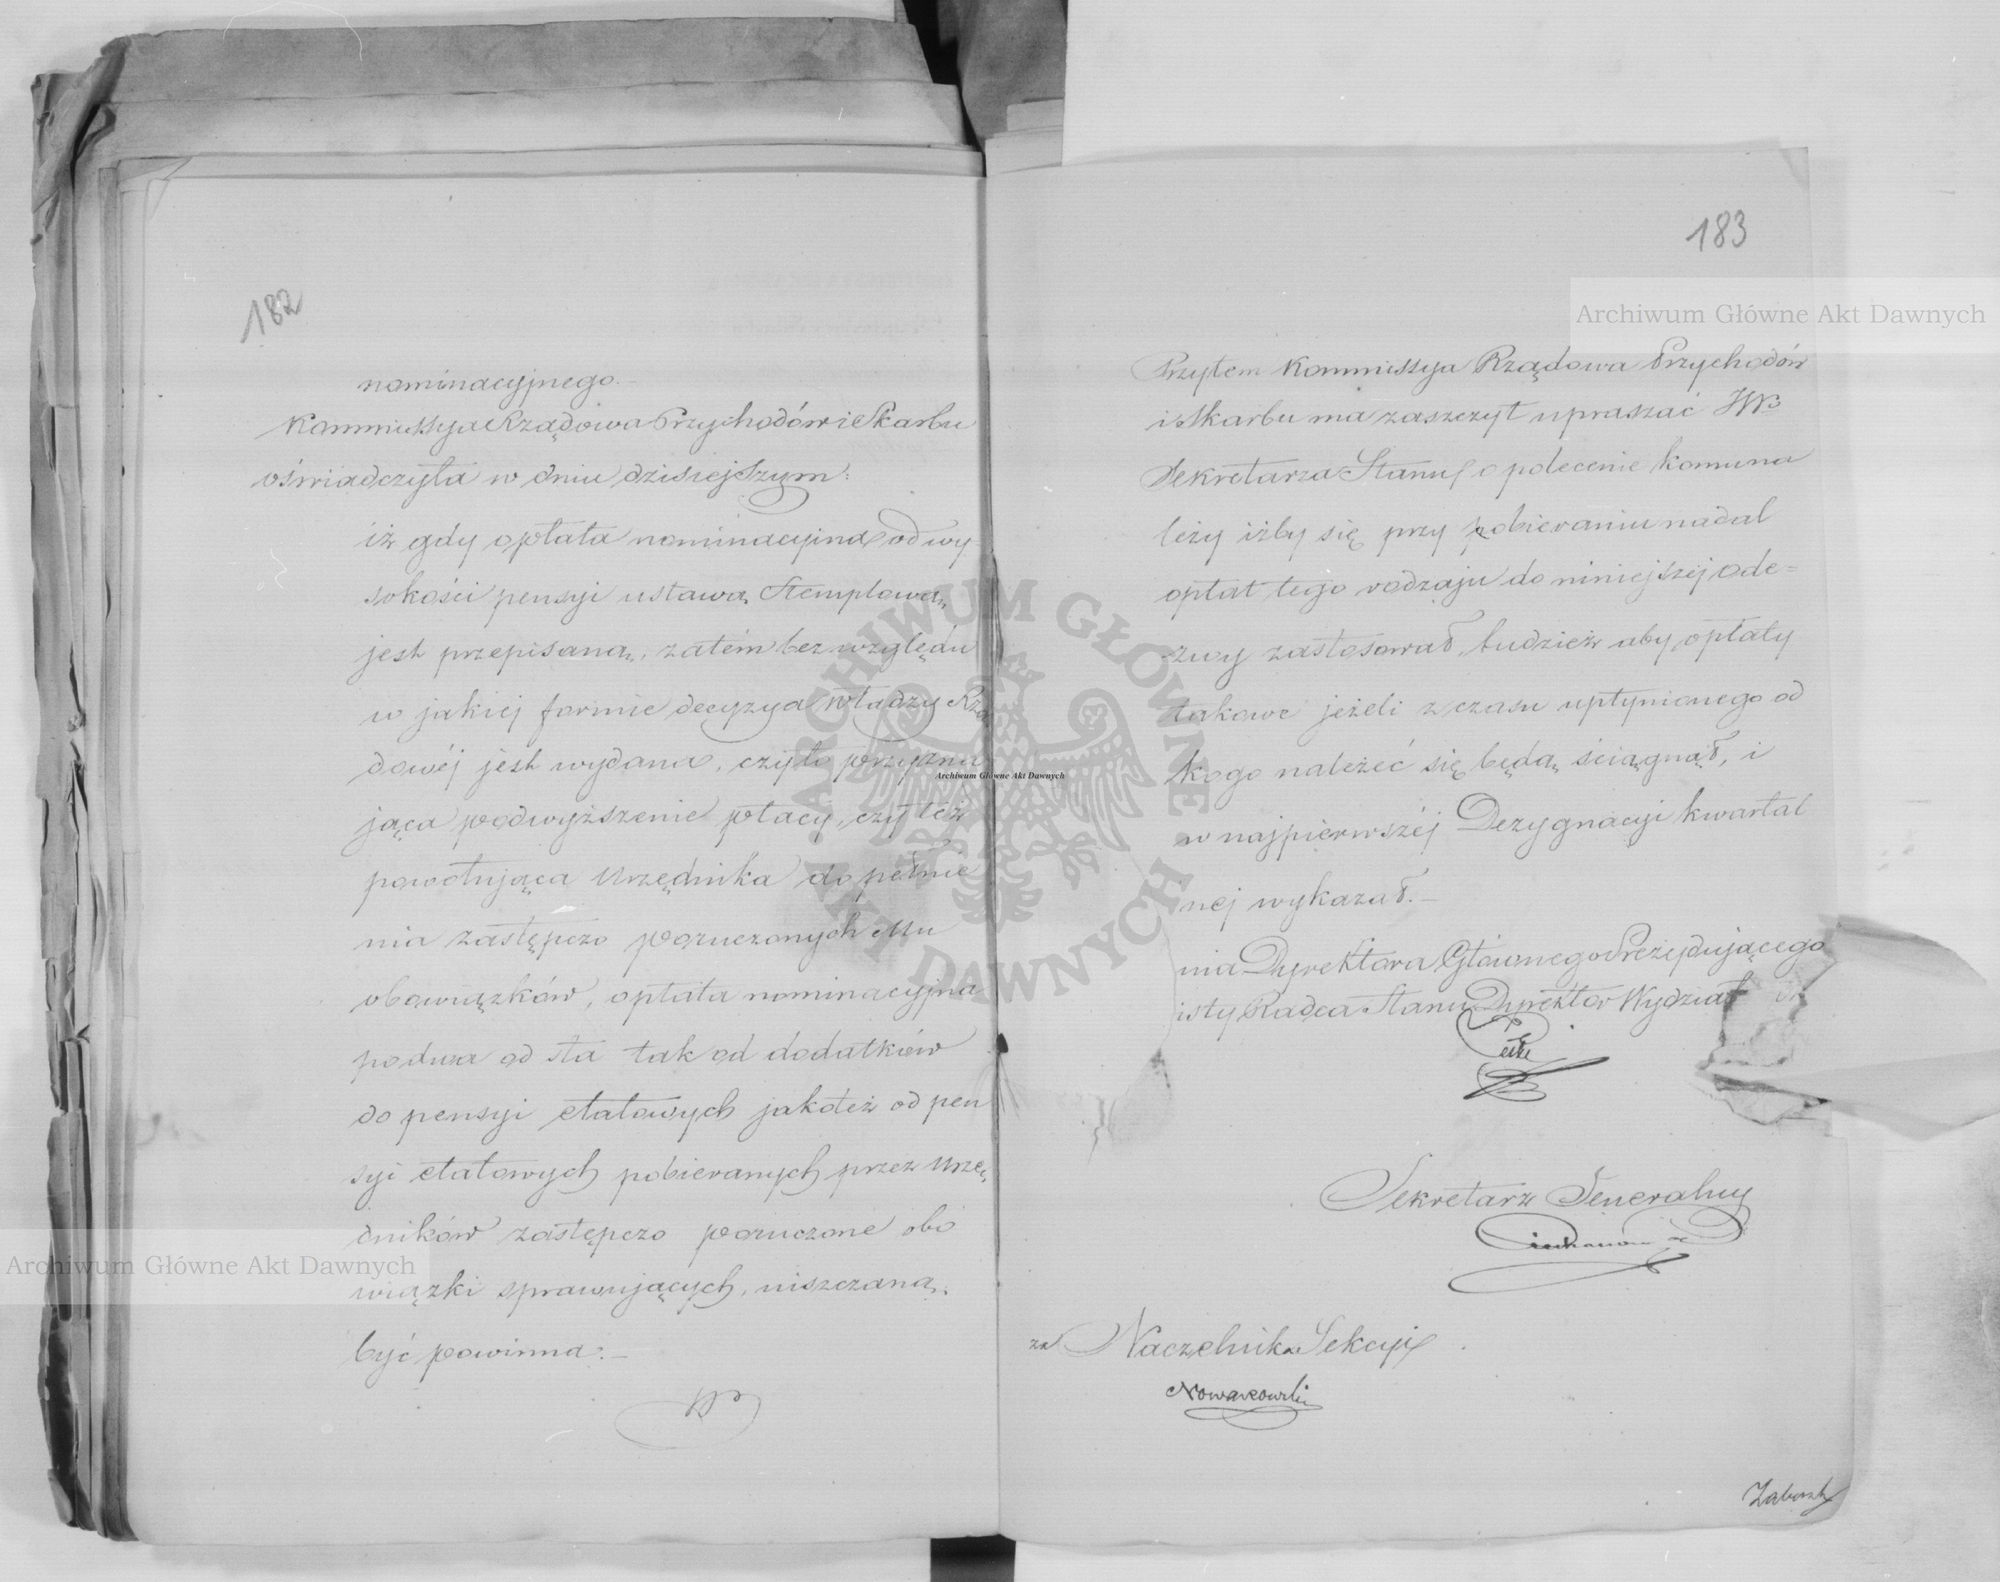 182
nominacyjnego.–
Kommissya Rządowa Przychodów i Skarbu
oświadczyła w dniu dzisiejszym:
iż gdy opłata nominacyjna od wy
sokości pensyi ustawą Stemplową
jest przepisaną, zatém bez względu
w jakiej formie decyzya władzy Rzą
dowéj jest wydana, czyto przyzna
jąca podwyższenie płacy, czy też
powołująca Urzędnika do pełnie
nia zastępczo poruczonych Mu
obowiązków, opłata nominacyjna
po dwa od sta tak od dodatków
do pensyi etatowych jakoteż od pen
syi etatowych pobieranych przez Urzę
dników zastępczo poruczone obo
wiązki sprawujących, uiszczaną
być powinna:–
183
Przytem Kommissya Rządowa Przychodów
i Skarbu ma zaszczyt upraszać JW
Sekretarza Stanu, o polecenie komu na
leży iżby się przy pobieraniu nadal
opłat tego rodzaju do niniejszéj ode=
zwy zastosował, tudzież aby opłaty
takowe jeżeli z czasu upłynionego od
kogo należeć się będą, ściągnął, i
w najpierwszéj Dezygnacyi kwartal
nej wykazał.–
nia Dyrektora Głównego Prezydującego
isty Radca Stanu Dyrektor Wydział
Sekretarz Generalny
za Naczelnika Sekcyi
Nowakowski
Archiwum Główne Akt Dawnych
Archiwum Główne Akt Dawnych
Archiwum Główne Akt Dawnych
ARCHIWUM GŁÓWNE AKT DAWNYCH